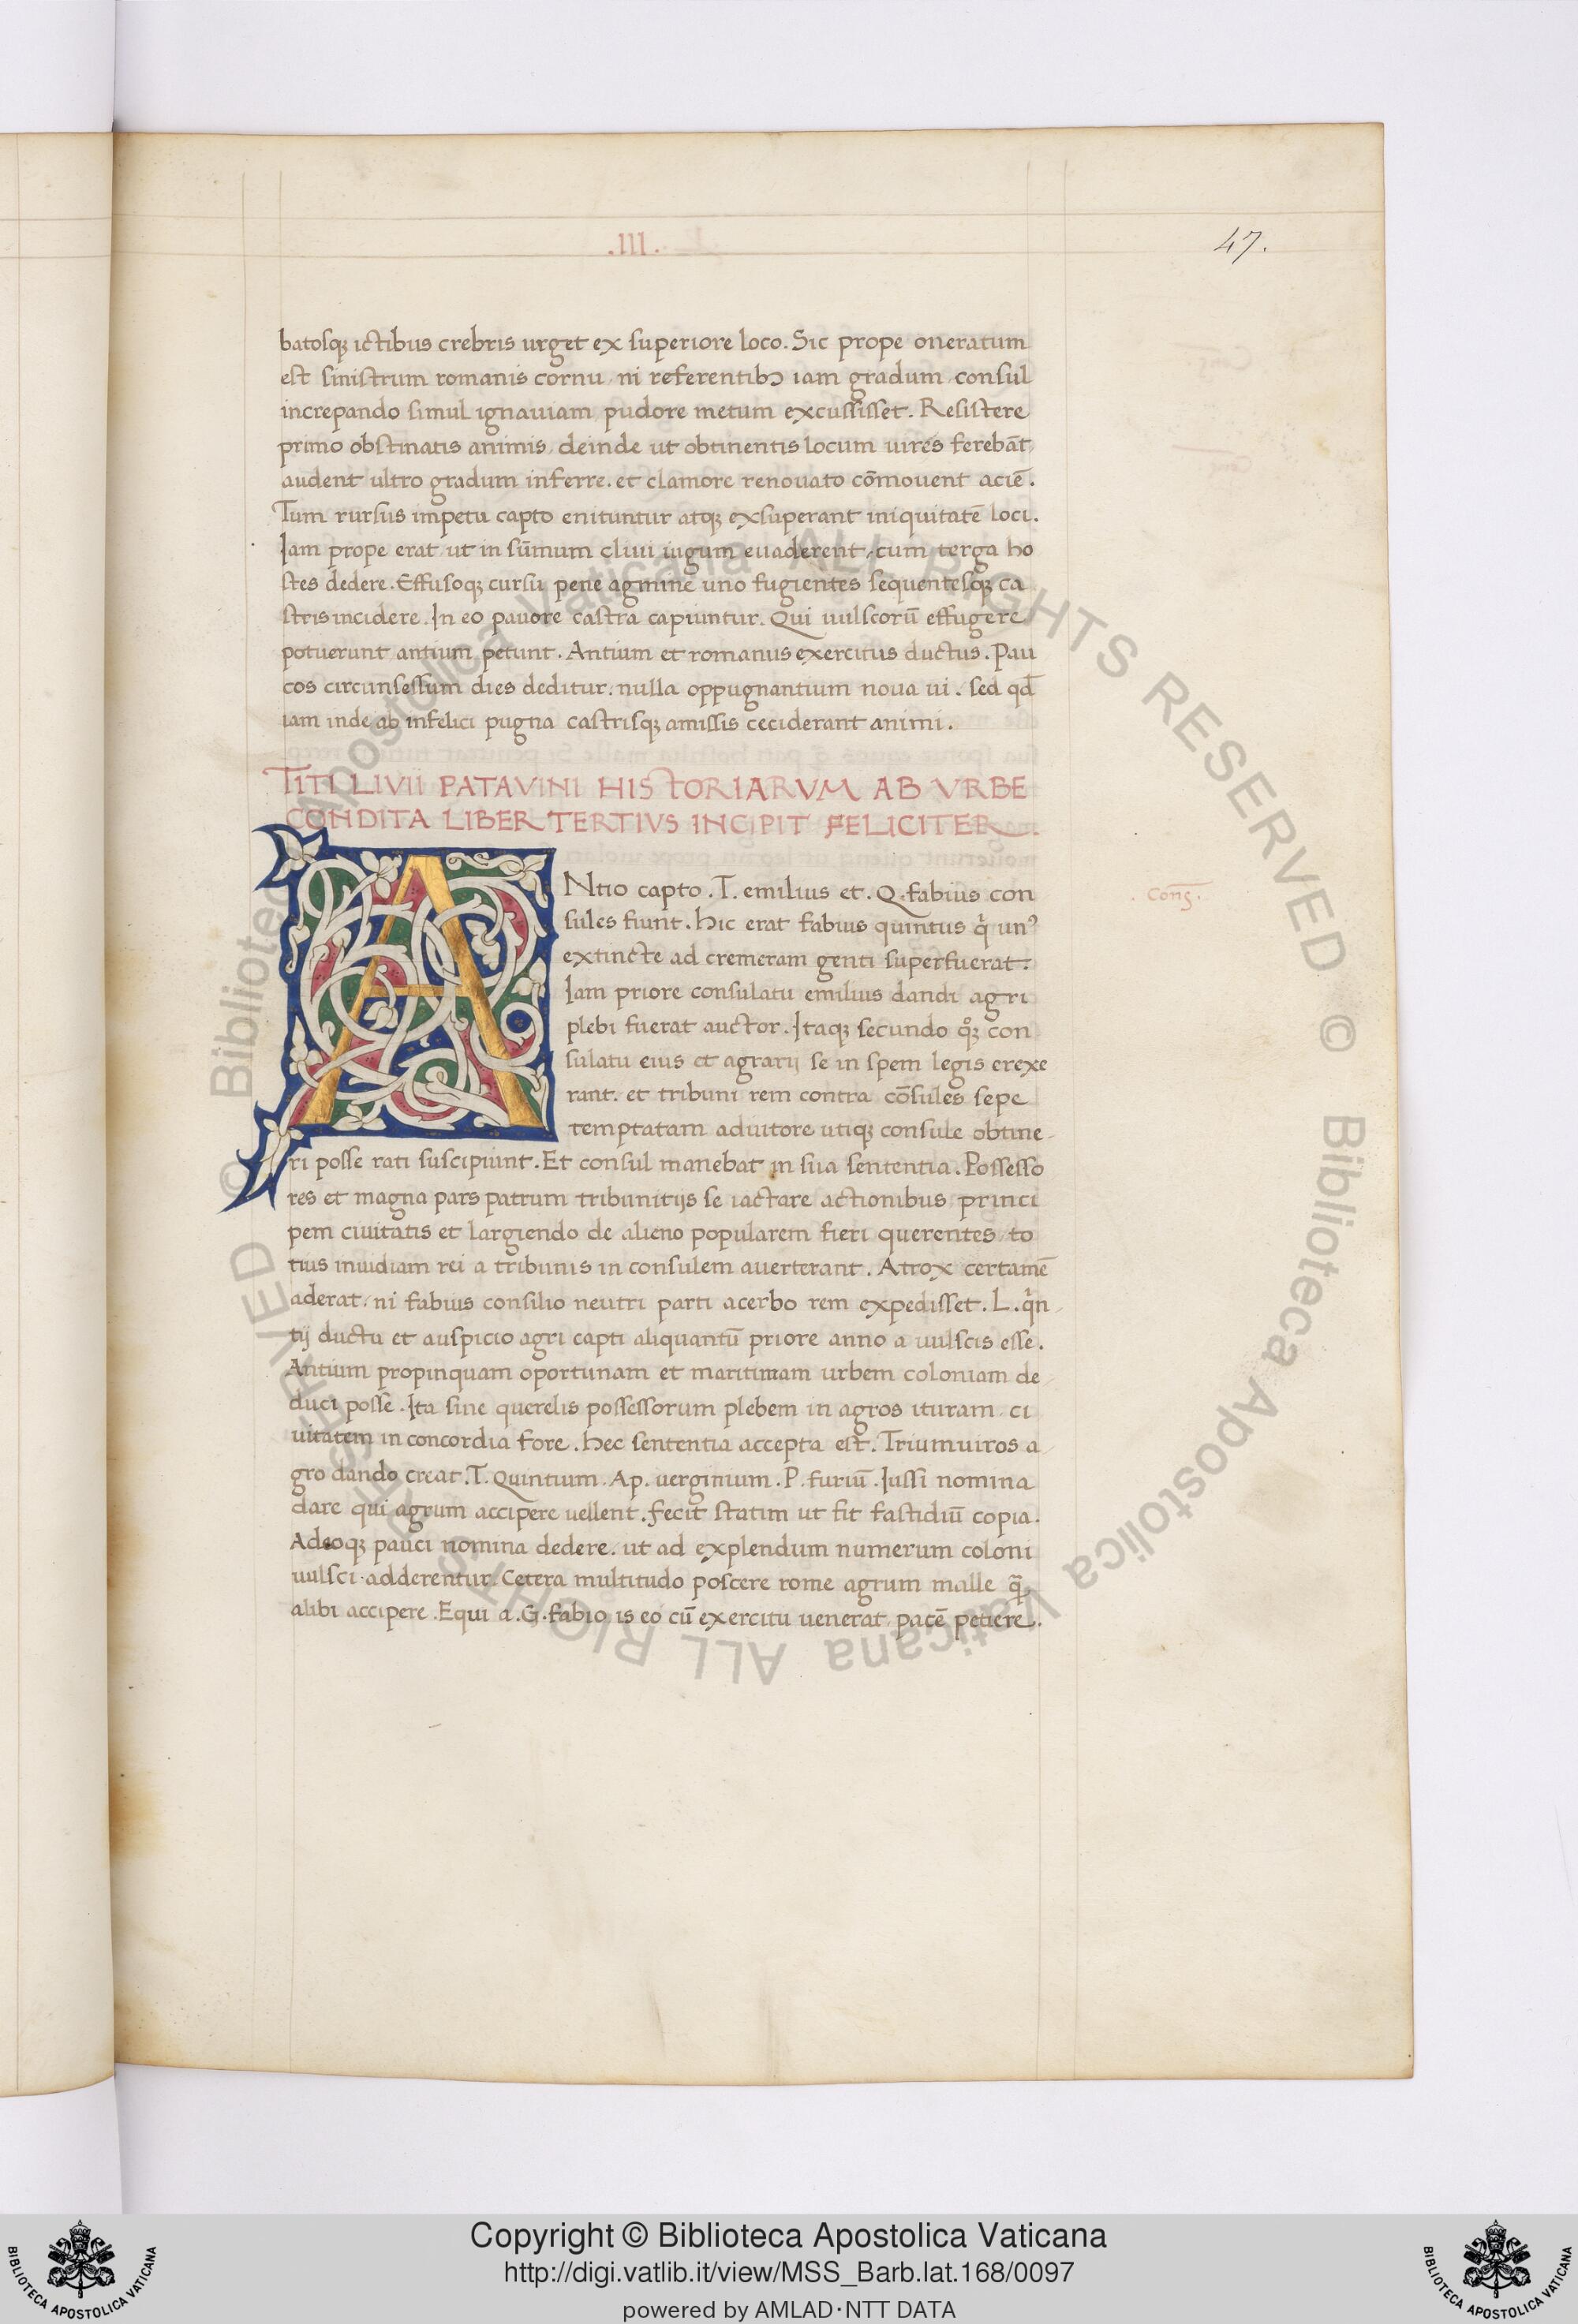 .III.
47.
batosq; ictibus crebris urget ex superiore loco. Sic prope oneratum
est sinistrum romanis cornu, ni referentibꝫ iam gradum consul
increpando simul ignauiam pudore metum excussisset. Resistere
primo obstinatis animis, deinde ut obtinentis locum uires ferebāt,
audent ultro gradum inferre. et clamore renouato cōmouent aciē.
Tum rursus impetu capto enituntur atq; exsuperant iniquitatē loci.
Iam prope erat ut in sūmum cliui iugum euaderent, cum terga ho
stes dedere. Effusoq; cursu pene agmine uno fugientes sequentesq; ca
stris incidere. In eo pauore castra capiuntur. Qui uulscorū effugere
potuerunt antium petunt. Antium et romanus exercitus ductus. Pau
cos circunsessum dies deditur. nulla oppugnantium noua ui. sed qd̄
iam inde ab infelici pugna castrisq; amissis ceciderant animi.
TITI LIVII PATAVINI HISTORIARVM AB VRBE
CONDITA LIBER TERTIVS INCIPIT FELICITER.
ANtio capto. T. emilius et. Q. fabius con
sules fiunt. Hic erat fabius quintus qͥ unꝰ
extincte ad cremeram genti superfuerat.
Iam priore consulatu emilius dandi agri
plebi fuerat auctor. Itaq; secundo qͦꝫ con
sulatu eius et agrarij se in spem legis erexe
rant. et tribuni rem contra cōsules sepe
temptatam adiutore utiq; consule obtine-
ri posse rati suscipiunt. Et consul manebat in sua sententia. Possesso
res et magna pars patrum tribunitijs se iactare actionibus principi
pem ciuitatis et largiendo de alieno popularem fieri querentes, to
tius inuidiam rei a tribunis in consulem auerterant. Atrox certamē
aderat. ni fabius consilio neutri parti acerbo rem expedisset. L. qͥn-
tij ductu et auspicio agri capti aliquantū priore anno a uulscis esse.
Antium propinquam oportunam et maritimam urbem coloniam de-
duci posse. Ita sine querelis possessorum plebem in agros ituram, ci
uitatem in concordia fore. Hec sententia accepta est. Triumuiros a-
gro dando creat. T. Quintium. Ap. uerginium. P. furiū. Iussi nomina
dare qui agrum accipere uellent. Fecit statim ut fit fastidiū copia.
Adeoq; pauci nomina dedere. ut ad explendum numerum coloni
uulsci adderentur. Cetera multitudo poscere rome agrum malle q̄ꝫ
alibi accipere. Equi a. G. fabio, is eo cū exercitu uenerat, pacē petiere.
. conſ.
© Biblioteca Apostolica Vaticana ALL RIGHTS RESERVED © Biblioteca Apostolica Vaticana ALL RIGHTS RESERVED
BIBLIOTECA APOSTOLICA VATICANA
Copyright © Biblioteca Apostolica Vaticana
http://digi.vatlib.it/view/MSS_Barb.lat.168/0097
powered by AMLAD·NTT DATA
BIBLIOTECA APOSTOLICA VATICANA